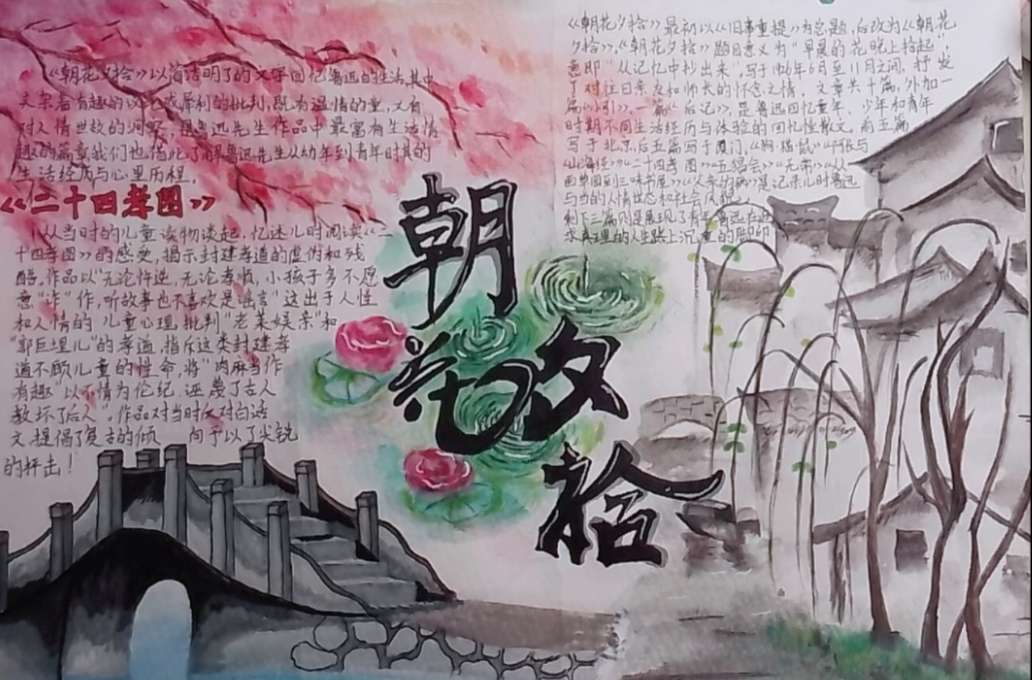 《朝花夕拾》以简洁明了的文字回忆鲁迅的生活,其中
又杂着有趣的议论或犀利的批判,既有温情的童,又有
对人情世故的洞察,是鲁迅先生作品中最富有生活情
趣的篇章我们也借此了解鲁迅先生从幼年到青年时其的
生活经历与心里历程.
《二十四孝图》
从当时的儿童读物谈起,忆述儿时阅读《二
十四孝图》的感受,揭示封建孝道的虚伪和残
酷,作品以"无论忤逆,无论孝顺,小孩子多不愿
意"诈"作,听故事也不喜欢是谣言"这出于人性
和人情的儿童心理,批判"老莱娱亲"和
"郭巨埋儿"的孝道,指斥这类封建孝
道不顾儿童的性命,将"肉麻当作
有趣"以不情为伦纪,诬蔑了古人
教坏了后人".作品对当时反对白话
文,提倡了复古的倾 向予以了尖锐
的抨击!
朝花夕拾
《朝花夕拾》最初以《旧事重提》为总题,后改为《朝花
夕拾》,《朝花夕拾》题目意义为"早晨的花晚上拾起"
意即"从记忆中抄出来",写于1926年6月至11月之间,抒发
了对往日亲友和师长的怀念之情,文章共十篇,外加一
篇《小引》、一篇《后记》,是鲁迅回忆童年、少年和青年
时期不同生活经历与体验的回忆性散文,前五篇
写于北京,后五篇写于厦门,《狗·猫·鼠》《阿长与
山海经》《二十四孝图》《五猖会》《无常》《从
百草园到三味书屋》《父亲的病》是记录儿时鲁迅
与当的人情世态和社会风貌
剩下三篇则是展现了青年鲁迅在追
求真理的人生路上沉重的脚印